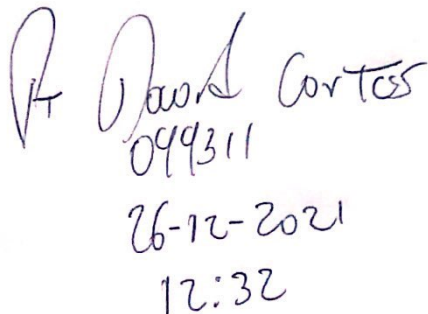 Pt David Cortes
099311
26-12-2021
12:32